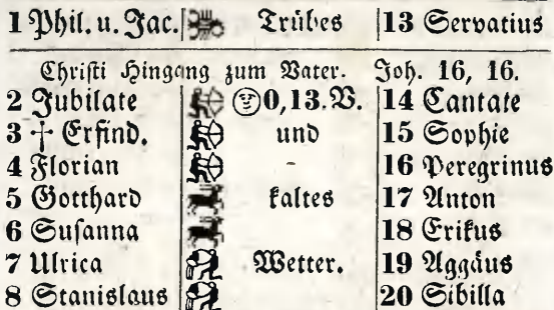 1 Phil. u. Jac. Trübes 13 Servatius
Christi Hingang zum Vater. Joh. 16, 16.
2 Jubilate 0,13. V. 14 Cantate
3 † Erfind. und 15 Sophie
4 Florian - 16 Peregrinus
5 Gotthard kaltes 17 Anton
6 Susanna 18 Erikus
7 Ulrica Wetter. 19 Aggäus
8 Stanislaus 20 Sibilla